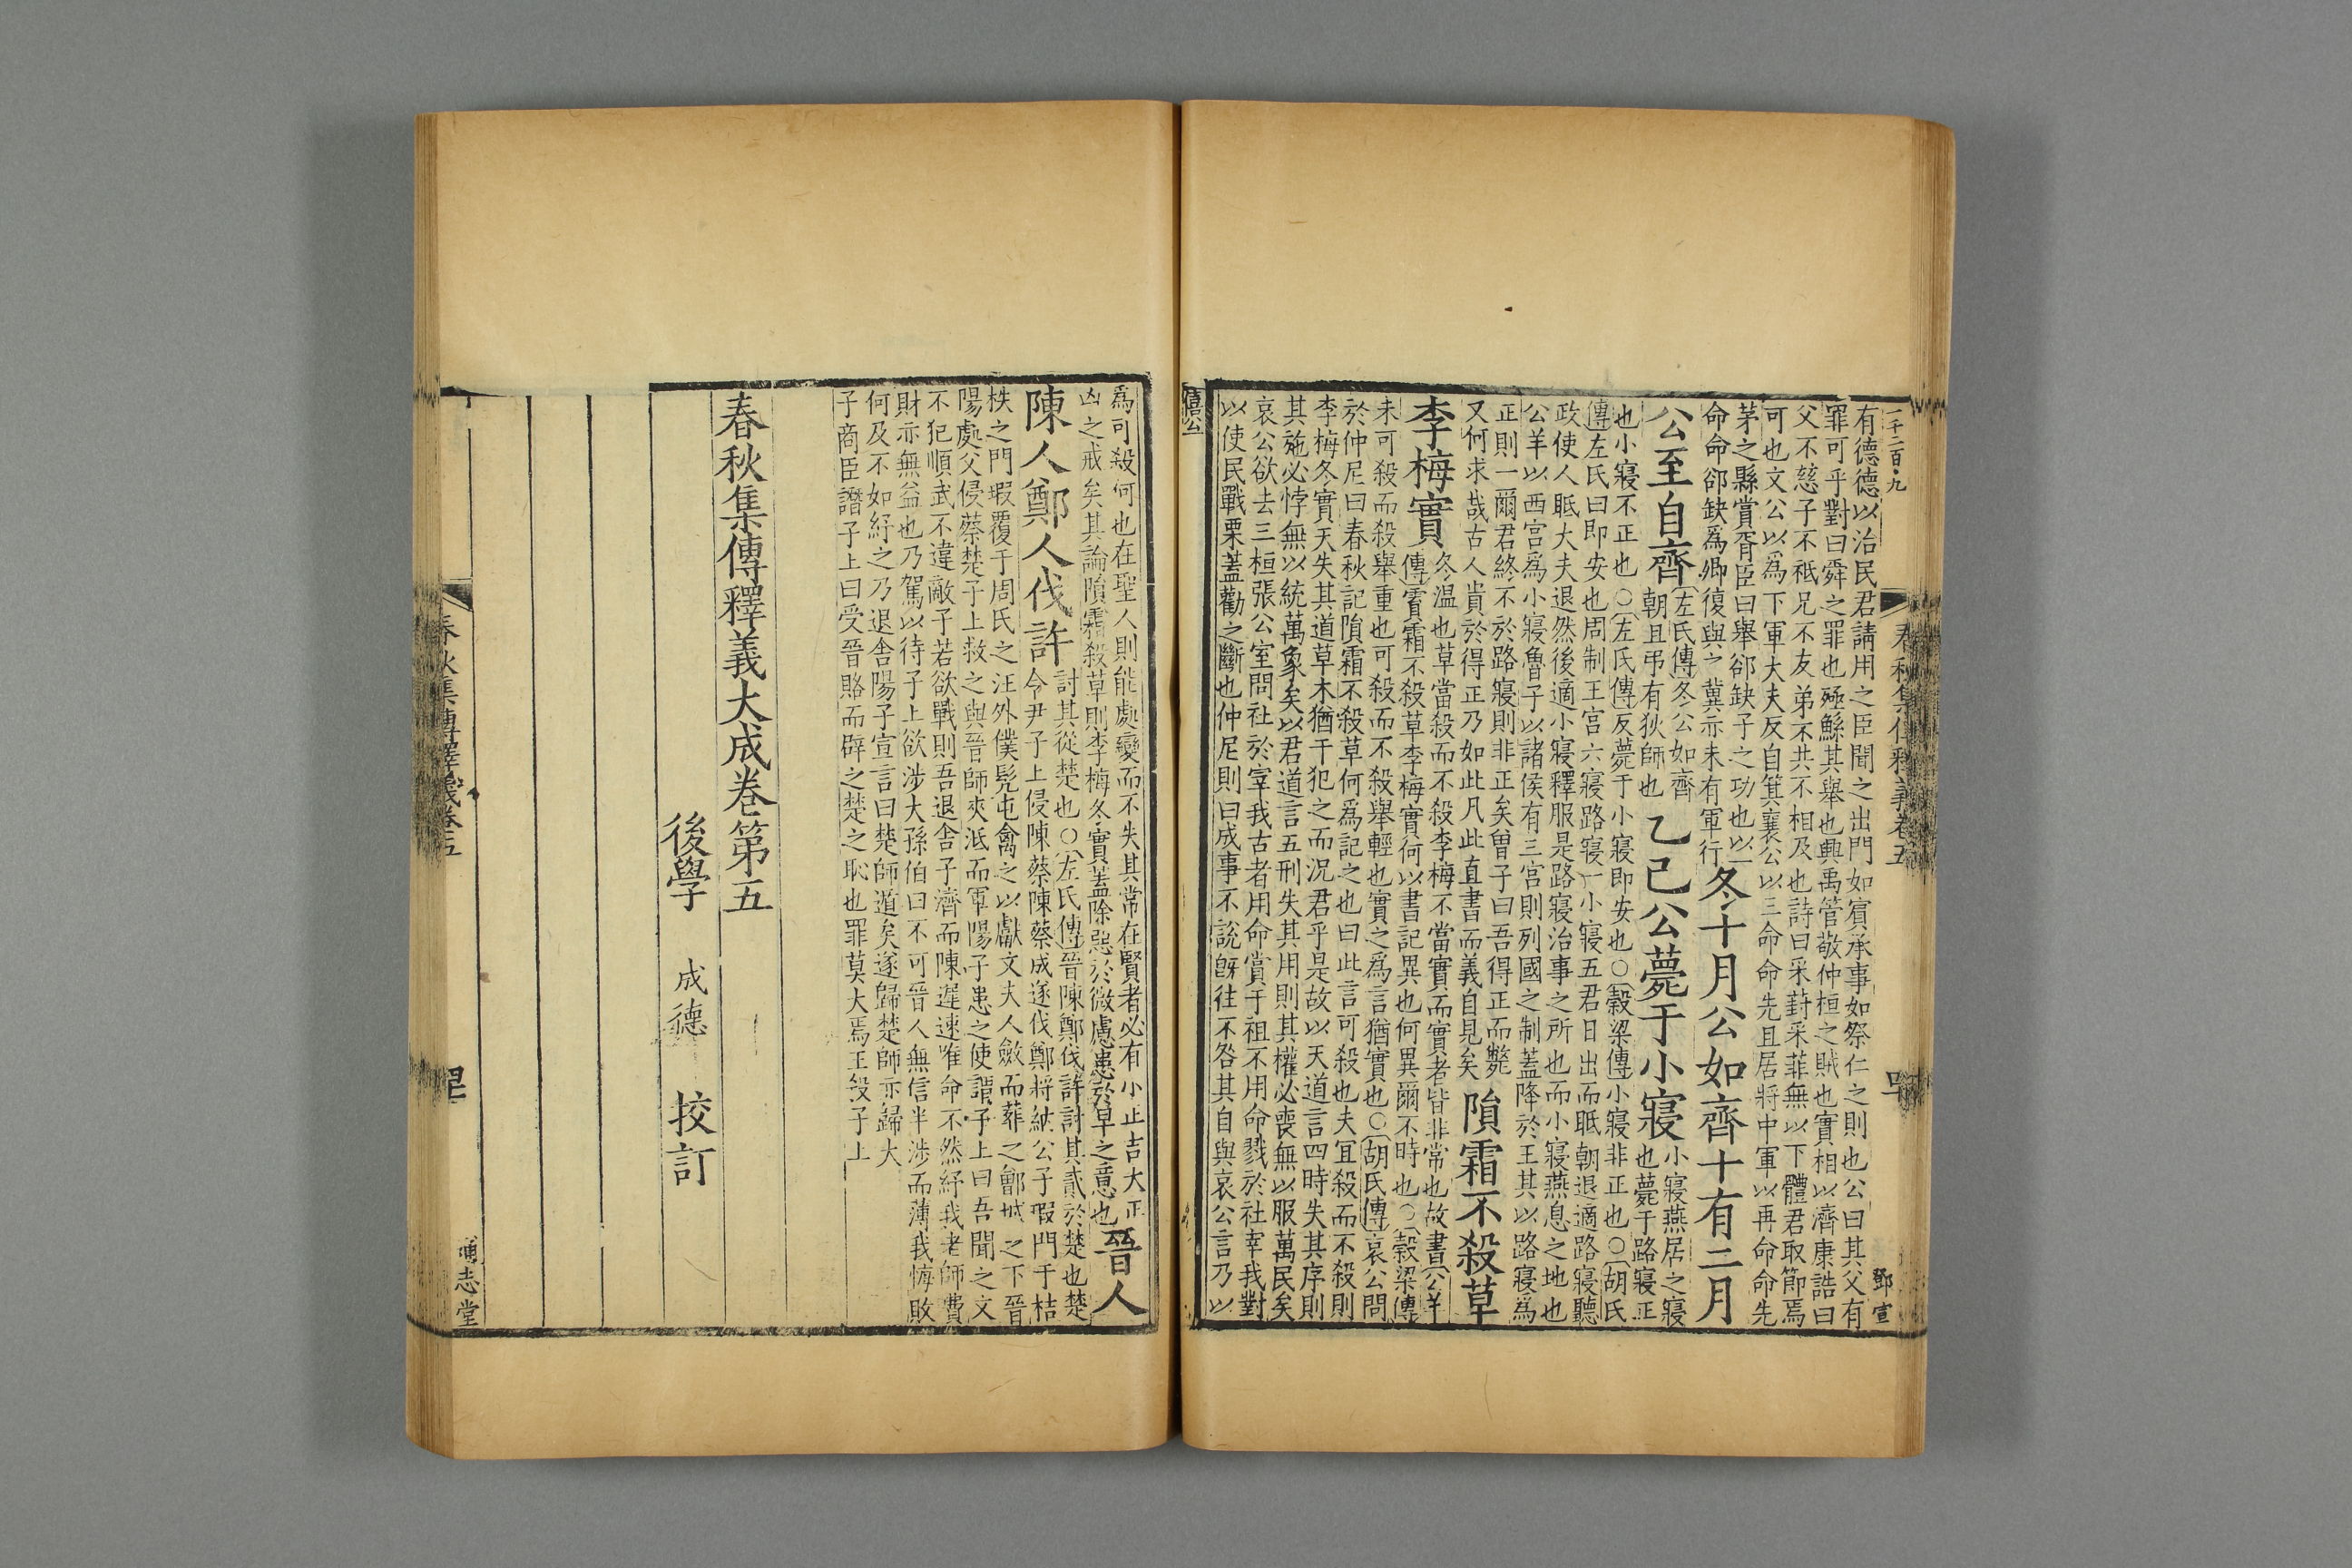 一千二百·九
春秋集傳釋義卷五
鄧宣
有德德以治民君請用之臣聞之出門如賔承事如祭仁之則也公曰其父有
罪可乎對曰舜之罪也殛鯀其舉也興禹管敬仲桓之賊也實相以濟康誥曰
父不慈子不祗兄不友弟不共不相及也詩曰采葑采菲無以下體君取節焉
可也文公以爲下軍大夫反自箕襄公以三命命先且居將中軍以再命命先
茅之縣賞胥臣曰舉郤缺子之功也以一
命命郤缺爲卿復與之冀亦未有軍行
冬十月公如齊十有二月
公至自齊
左氏傳冬公如齊
朝且弔有狄師也
乙巳公薨于小寢
小寢燕居之寢
也薨于路寢正
也小寢不正也○左氏傳反薨于小寢即安也○穀梁傳小寢非正也○胡氏
傳左氏曰即安也周制王宮六寢路寢一小寢五君日出而眡朝退適路寢聽
政使人眡大夫退然後適小寢釋服是路寢治事之所也而小寢燕息之地也
公羊以西宮爲小寢魯子以諸侯有三宮則列國之制蓋降於王其以路寢爲
正則一爾君終不於路寢則非正矣曽子曰吾得正而斃
又何求哉古人貴於得正乃如此凡此直書而義自見矣
隕霜不殺草
李梅實
冬温也草當殺而不殺李梅不當實而實者皆非常也故書公羊
傳賈霜不殺草李梅實何以書記異也何異爾不時也○穀梁傳
未可殺而殺舉重也可殺而不殺舉輕也實之爲言猶實也○胡氏傳哀公問
於仲尼曰春秋記隕霜不殺草何爲記之也曰此言可殺也夫宜殺而不殺則
李梅冬實天失其道草木猶干犯之而況君乎是故以天道言四時失其序則
其施必悖無以統萬象矣以君道言五刑失其用則其權必喪無以服萬民矣
哀公欲去三桓張公室問社於宰我古者用命賞于祖不用命戮於社宰我對
以使民戰栗蓋勸之斷也仲尼則曰成事不說旣往不咎其自與哀公言乃以
僖公
爲可殺何也在聖人則能處變而不失其常在賢者必有小正吉大正
凶之戒矣其論隕霜殺草則李梅冬實蓋除惡於微慮患於早之意也
晉人
陳人鄭人伐許
討其從楚也○左氏傳晉陳鄭伐許討其貳於楚也楚
令尹子上侵陳蔡陳蔡成遂伐鄭將納公子瑕門于桔
柣之門瑕覆于周氏之汪外僕髠屯禽之以獻文夫人斂而葬之鄶城之下晉
陽處父侵蔡楚子上救之與晉師夾泜而軍陽子患之使謂子上曰吾聞之文
不犯順武不違敵子若欲戰則吾退舍子濟而陳遲速唯命不然紓我老師費
財亦無益也乃駕以待子上欲涉大孫伯曰不可晉人無信半涉而薄我悔敗
何及不如紓之乃退舍陽子宣言曰楚師遁矣遂歸楚師亦歸大
子商臣譖子上曰受晉賂而辟之楚之恥也罪莫大焉王殺子上
春秋集傳釋義大成卷第五
後學 成德 挍訂
春秋集傳釋義卷五
通志堂